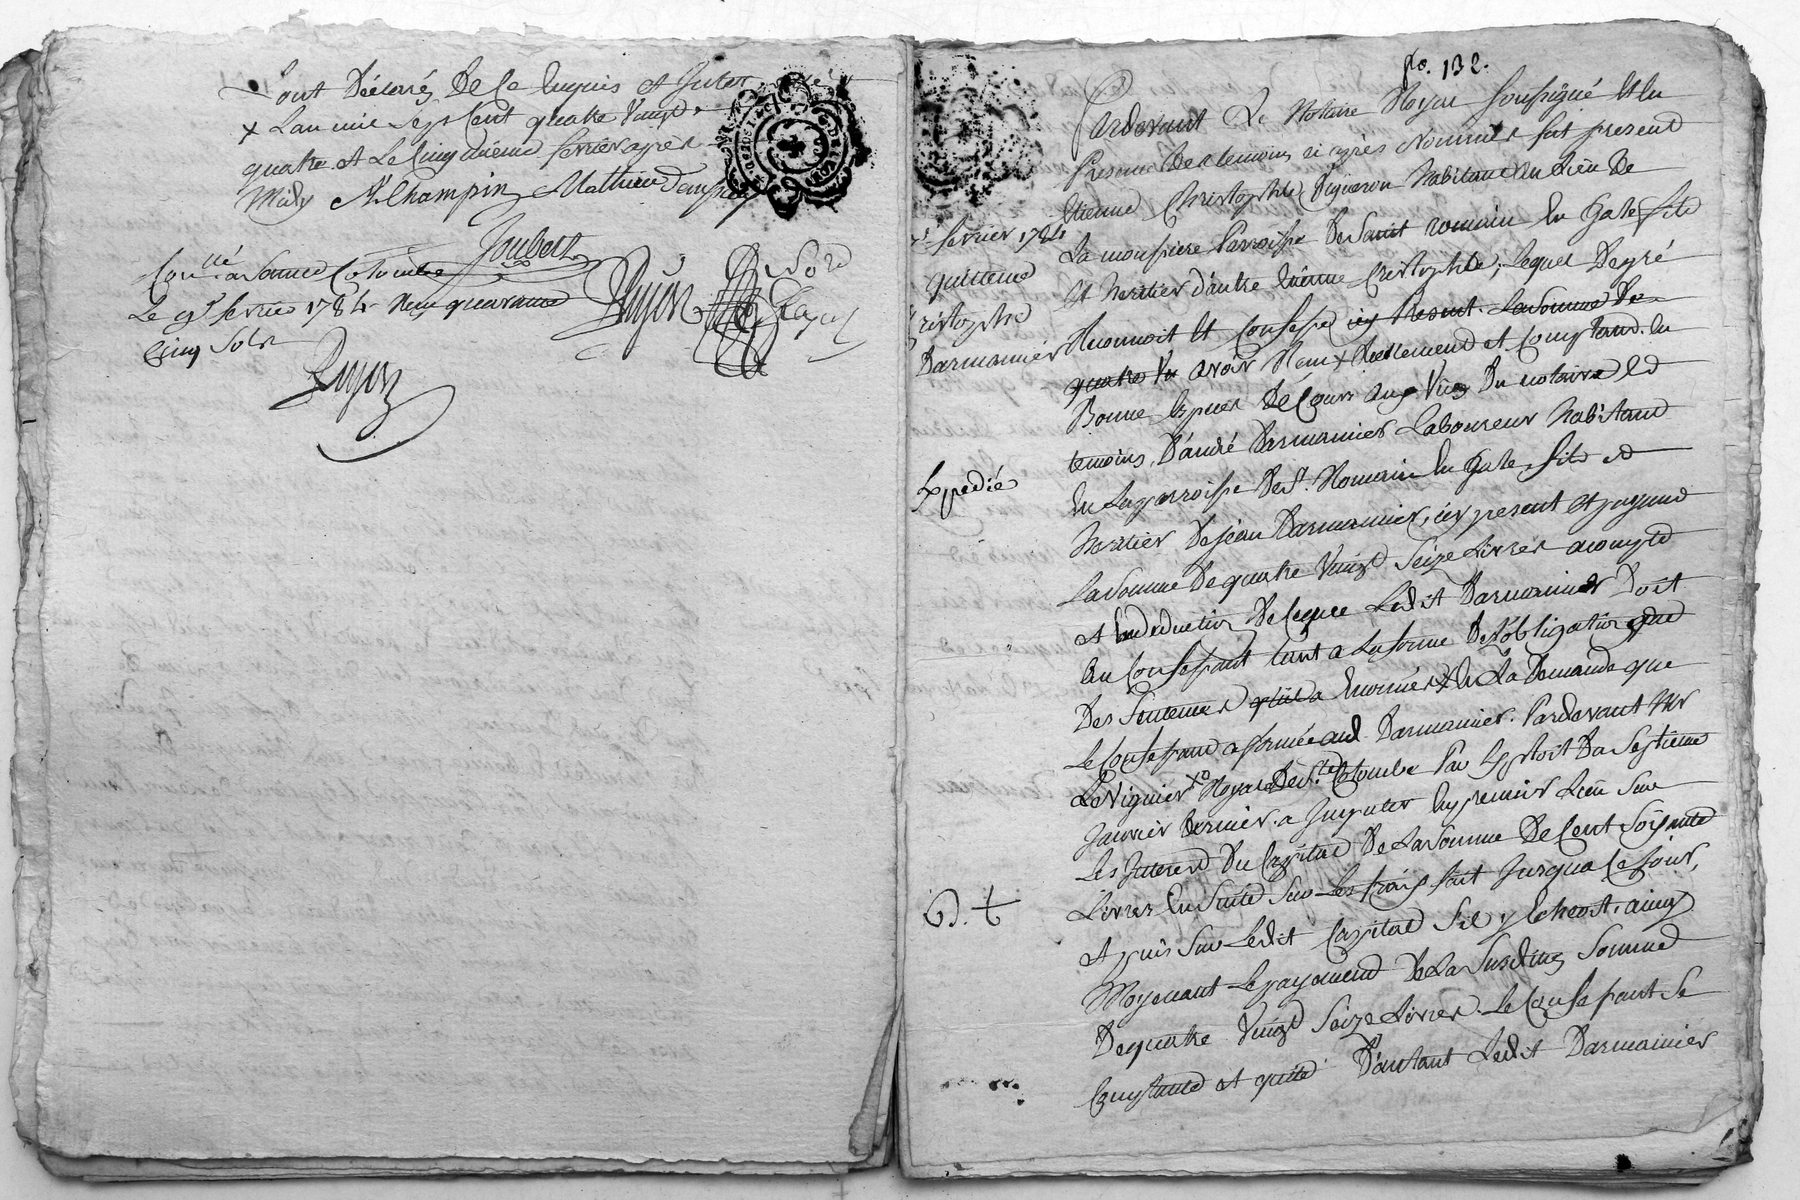 sont Déclarés De Ce Enquis et
x Lan mil sept Cent quatre Vingt
quatre et Le Cinq dudit fevrier après
Midy Champin Mathieu
Joubert
Con.llé a sainte Colombe
Le 9e fevrie 1784 Reçu quarante
Cinq Sols
Bujon
Bujon
fo. 132.
Pardevant Le Notaire Royal soussigné Et En
Presence Des temoins ci après Nommés fut present
Etienne Christophle Vigneron habitant Au Lieu De
La mousiere Parroisse De Saint romain En Gale fils
Et heritier d'autre Etienne Cristophle; lequel De gré
Reconnoit Et Confesse icy Present La somme De
quatre Vin avoir Reçu x Reellement et Comptant En
Bonnes Especes De Cours aux Vües Du notaire Ed
temoins, D'andré Darmanier Laboureur habitant
En La parroisse De St. Romain En Gale, fils Ed
heritier De jean Darmanier, icy present et payant
La somme De quatre Vingt Seize Livres acompte
et En deduction De Ce que Ledit Darmanier Doit
Au Confessant tant a La forme De L'obligation que
Des Sentences qu'il a Enoncées x En La Demande que
Le Confessant a formée aud. Darmanier. Pardevant Mr
Le Viguier Royal De Ste Colombe Par Exploit Du Septieme
Janvier Dernier. a Imputer En premier Lieu Sur
Les Interets Du Capital De La somme De Cent Soixante
Livres En Suite Sur Les frais fait Jusqua Ce Jour,
et puis Sur Ledit Capital Sil y Echeoit, ainsy
Moyenant Le payement De La Susditte Somme
De quatre Vingt Seize Livres. Le Confessant Se
Contente et quitte D'autant Ledit Darmanier
fevrier 1784
quittence
Cristophle
Darmanier
Expedié